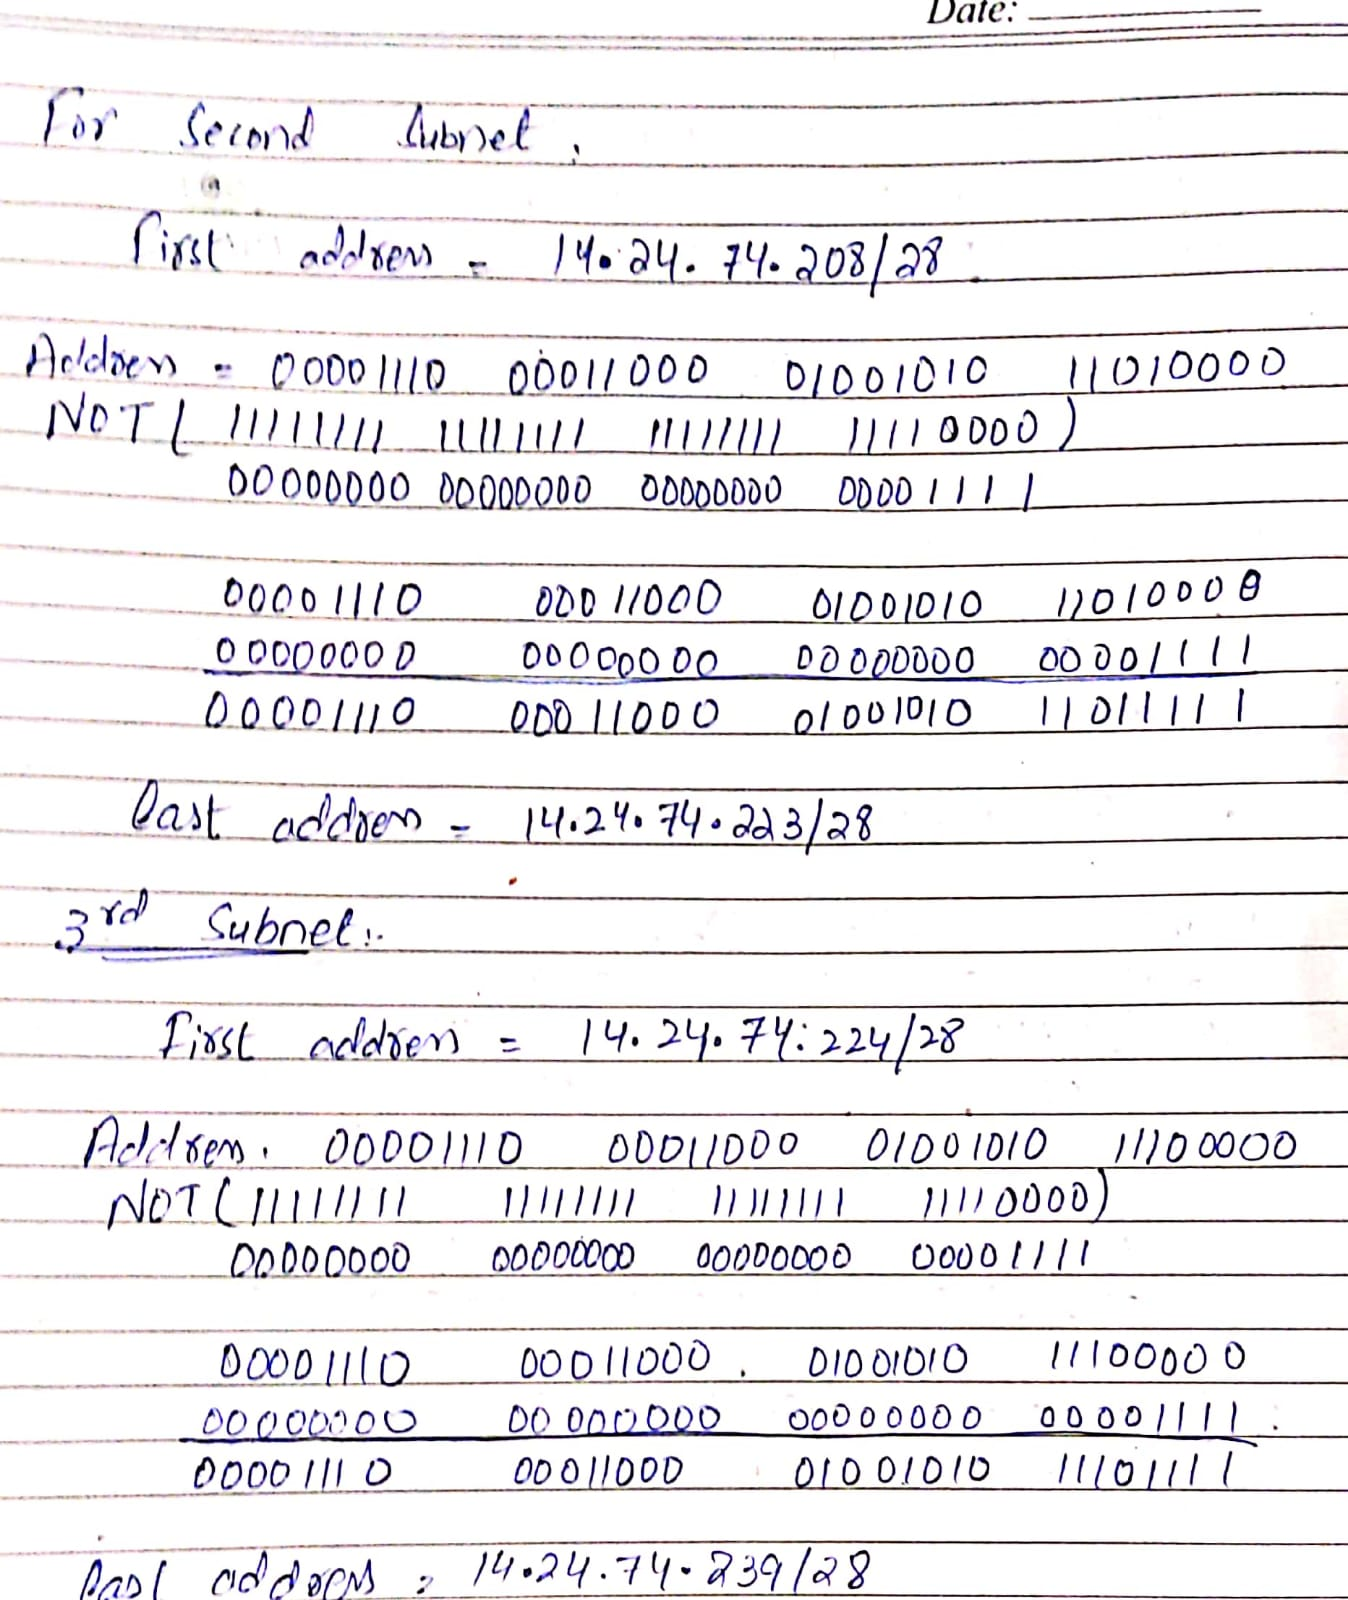 Date:
For Second Subnet,
First address = 14.24.74.208/28
Address = 00001110 00011000 01001010 11010000
NOT( 11111111 11111111 11111111 11110000)
00000000 00000000 00000000 00001111
00001110 00011000 01001010 11010000
00000000 00000000 00000000 00001111
00001110 00011000 01001010 11011111
last address = 14.24.74.223/28
3rd Subnet:-
First address = 14.24.74.224/28
Address. 00001110 00011000 01001010 11100000
NOT(11111111 11111111 11111111 11110000)
00000000 00000000 00000000 00001111
00001110 00011000 01001010 11100000
00000000 00000000 00000000 00001111
00001110 00011000 01001010 11101111
last address = 14.24.74.239/28